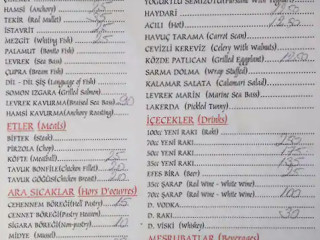 HAMSİ (Anchovy) 15
TEKİR (Red Mullet) 35
İSTAVRİT 15
MEZGİT (Whiting Fish) 25
PALAMUT (Bonito Fish)
LEVREK (Sea Bass)
ÇUPRA (Bream Fish)
DİL - DİL ŞİŞ (Language of Fish)
SOMON IZGARA (Grilled Salmon)
LEVREK KAVURMA (Bruised Sea Bass) 20
HAMSİ KAVURMA (Anchovy Roasting)
ETLER (Meats)
BİFTEK (Steak)
PİRZOLA (Chop)
KÖFTE (Meatball) 25
TAVUK BONFİLE (Chicken Fillet) 20
TAVUK GÖĞSÜ (Chicken Breast) 20
ARA SICAKLAR (Hors D'oeuvrs)
CEHENNEM BÖREĞİ (Hell Pastry) 15
CENNET BÖREĞİ (Pastry Heaven)
SİGARA BÖREĞİ (Non-pastry) 10
MİDYE
YOĞURTLU SEMİZOTU
HAYDARİ
ACILI (Hot) 12.50
HAVUÇ TARAMA (Carrot Scan)
CEVİZLİ KEREVİZ (Celery With Walnuts)
KÖZDE PATLICAN (Grilled Eggplant) 12.50
SARMA DOLMA (Wrap Stuffed)
KALAMAR SALATA (Calamari Salad)
LEVREK MARİN (Marine Sea Bass)
LAKERDA (Pickled Tunny)
İÇECEKLER (Drinks)
100cc YENİ RAKI (Raki)
70cc YENİ RAKI 250
50cc YENİ RAKI 175
35cc YENİ RAKI 135
EFES BİRA 25
35cc ŞARAP (Red Wine - White Wine)
70cc ŞARAP (Red Wine - White Wine) 100
D. VODKA
D. RAKI 30
D. VİSKİ (Whiskey)
MEŞRUBATLAR (Beverages)